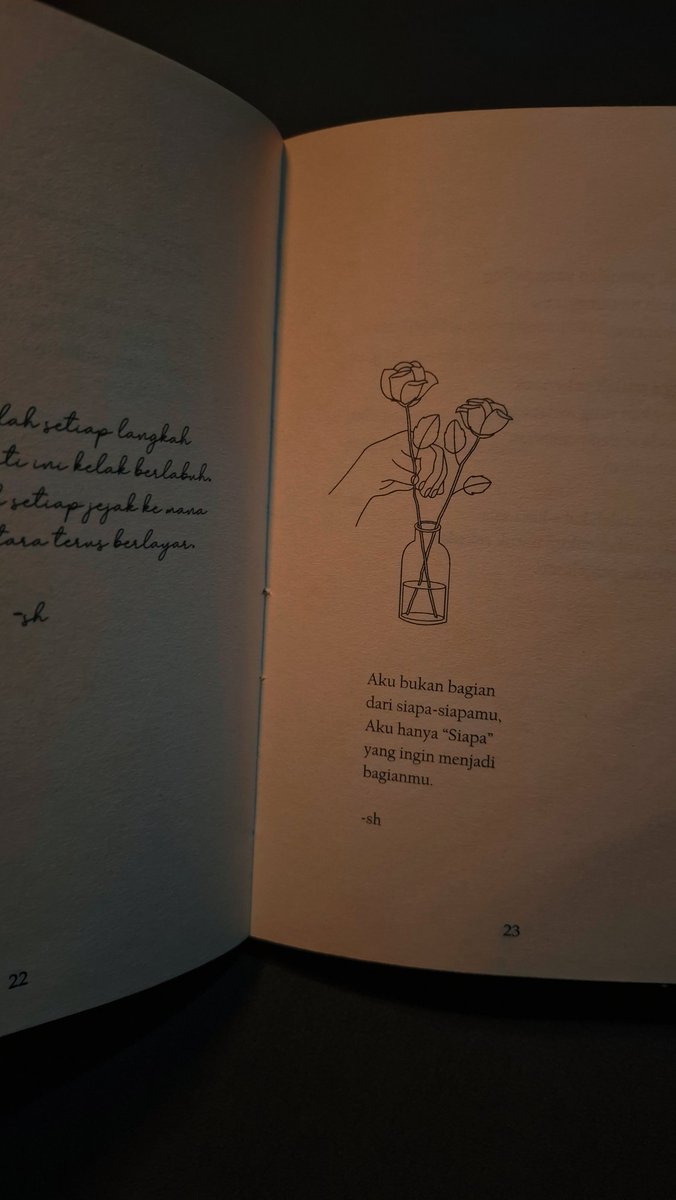 setiap langkah
ini kelak berlabuh.
setiap jejak ke mana
terus berlayar.
-sh
22
Aku bukan bagian
dari siapa-siapamu,
Aku hanya “Siapa”
yang ingin menjadi
bagianmu.
-sh
23